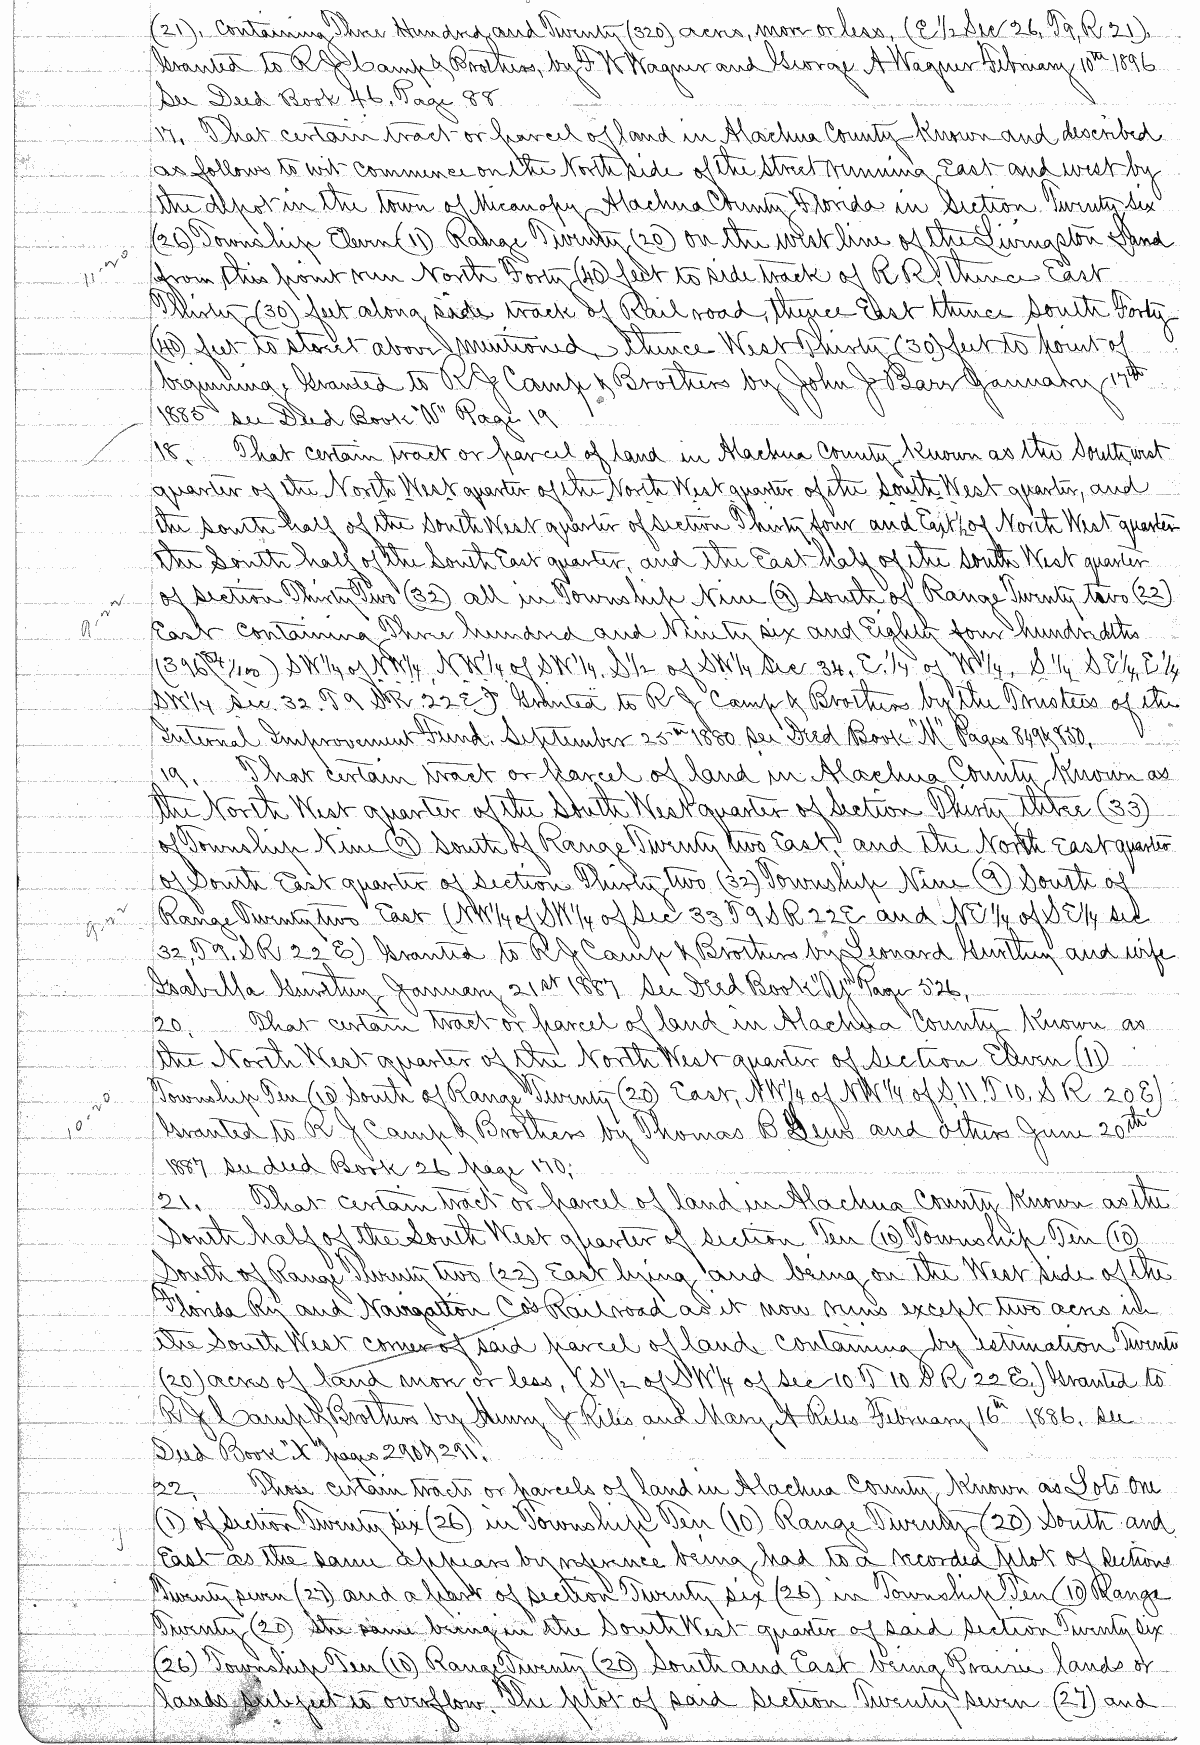 (21). Containing Three Hundred and Twenty (320) acres, more or less, (E 1/2 Sec 26, T9, R 21).
Granted to R J Camp & Brothers, by F W Wagner and George A Wagner February 10th 1896
See Deed Book 46, Page 88
17. That certain tract or parcel of land in Alachua County Known and described
as follows to wit commence on the North side of the Street running East and west by
the depot in the town of Micanopy Alachua County Florida in Section Twenty six
(26) Township Eleven (11) Range Twenty (20) on the west line of the Livingston land
11-20
from this point run North Forty (40) feet to side track of R R. thence East
Thirty (30) feet along side track of Rail road, thence East thence South Forty
(40) feet to street above mentioned, thence West Thirty (30) feet to point of
beginning. Granted to R J Camp & Brothers by John J Barr January 17th
1885 see Deed Book "V" Page 19
18. That certain tract or parcel of land in Alachua County Known as the South west
quarter of the North West quarter of the North West quarter of the South West quarter, and
the south half of the South West quarter of section Thirty four and East 1/2 of North West quarter
the South half of the South East quarter, and the East half of the South West quarter
of section Thirty Two (32) all in Township Nine (9) South of Range Twenty two (22)
9-22
East containing Three hundred and Ninety six and Eighty four hundredths
(396 84/100) SW1/4 of NW1/4, NW1/4 of SW1/4, S1/2 of SW1/4 Sec 34, E.1/4 of W1/4, S1/4 SE1/4, E1/4
SW1/4 Sec. 32. T9 S R. 22 E) Granted to R J Camp & Brothers by the Trustees of the
Internal Improvement Fund. September 25th 1880 see Deed Book "M" Pages 849 & 850.
19. That certain tract or parcel of land in Alachua County Known as
the North West quarter of the South West quarter of section Thirty three (33)
of Township Nine (9) South of Range Twenty two East, and the North East quarter
of South East quarter of section Thirty two (32) Township Nine (9) South of
9-22
Range Twenty two East (NW1/4 of SW1/4 of Sec 33 T9 S R 22 E and NE1/4 of SE1/4 sec
32, T9, S R 22 E) Granted to R J Camp & Brothers by Leonard and wife
Isabella January 21st 1887 See Deed Book Page 526,
20. That certain tract or parcel of land in Alachua County Known as
the North West quarter of the North West quarter of section Eleven (11)
10-20
Township Ten (10) South of Range Twenty (20) East, NW1/4 of NW1/4 of S. 11. T 10. S R 20 E)
Granted to R J Camp & Brothers by Thomas B and others June 20th
1887 see deed Book 26 page 170;
21. That certain tract or parcel of land in Alachua County Known as the
South half of the South West quarter of section Ten (10) Township Ten (10)
South of Range Twenty two (22) East lying and being on the West side of the
Florida Ry and Navigation Co's Railroad as it now runs except two acres in
the South West corner of said parcel of land containing by estimation Twenty
(20) acres of land more or less, (S1/2 of SW1/4 of Sec 10 T 10 S R 22 E.) Granted to
R J Camp & Brothers by Henry J Riles and Mary A Riles February 16th 1886, see
Deed Book "X" pages 290 & 291.
22. Those certain tracts or parcels of land in Alachua County, Known as Lots one
(1) of section Twenty six (26) in Township Ten (10) Range Twenty (20) South and
East as the same appears by reference being had to a recorded plot of sections
Twenty seven (27) and a part of section Twenty six (26) in Township Ten (10) Range
Twenty (20) the same being in the South West quarter of said section Twenty six
(26) Township Ten (10) Range Twenty (20) South and East being Prairie lands or
lands subject to overflow. The plot of said section Twenty seven (27) and